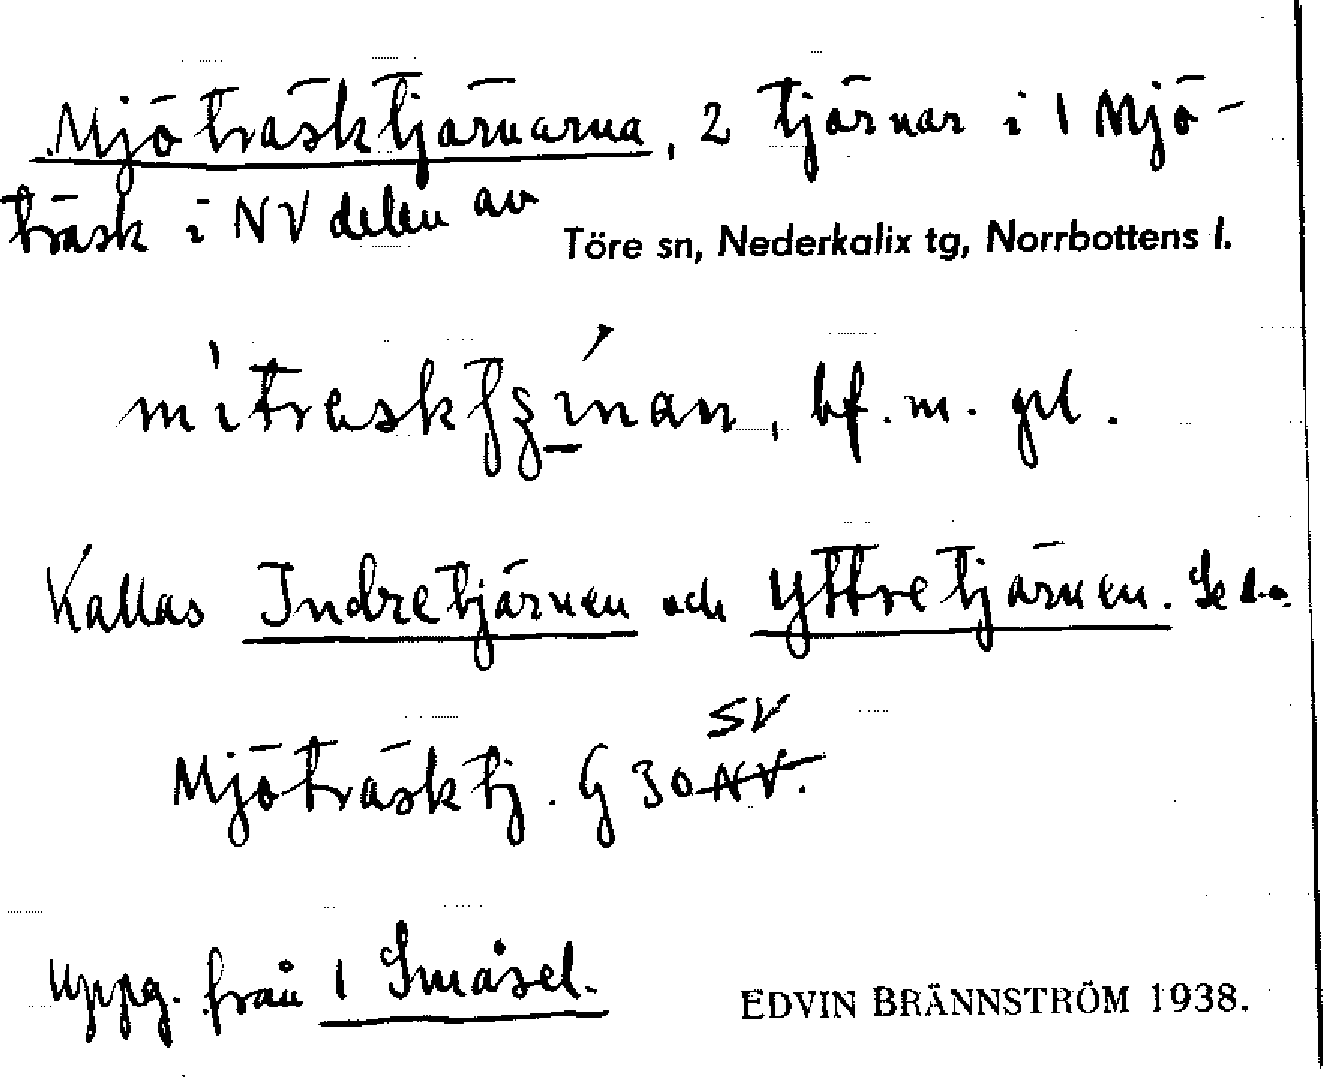 Mjöträsktjärnarna, 2 tjärnar i 1 Mjö-
träsk i NV delen av
Töre sn, Nederkalix tg, Norrbottens l.
bf. m. pl.
Kallas Indretjärnen och Yttretjärnen. Se d.o.
Mjöträsktj. G 30 SV
uppg. från 1 Småsel.
EDVIN BRÄNNSTRÖM 1938.